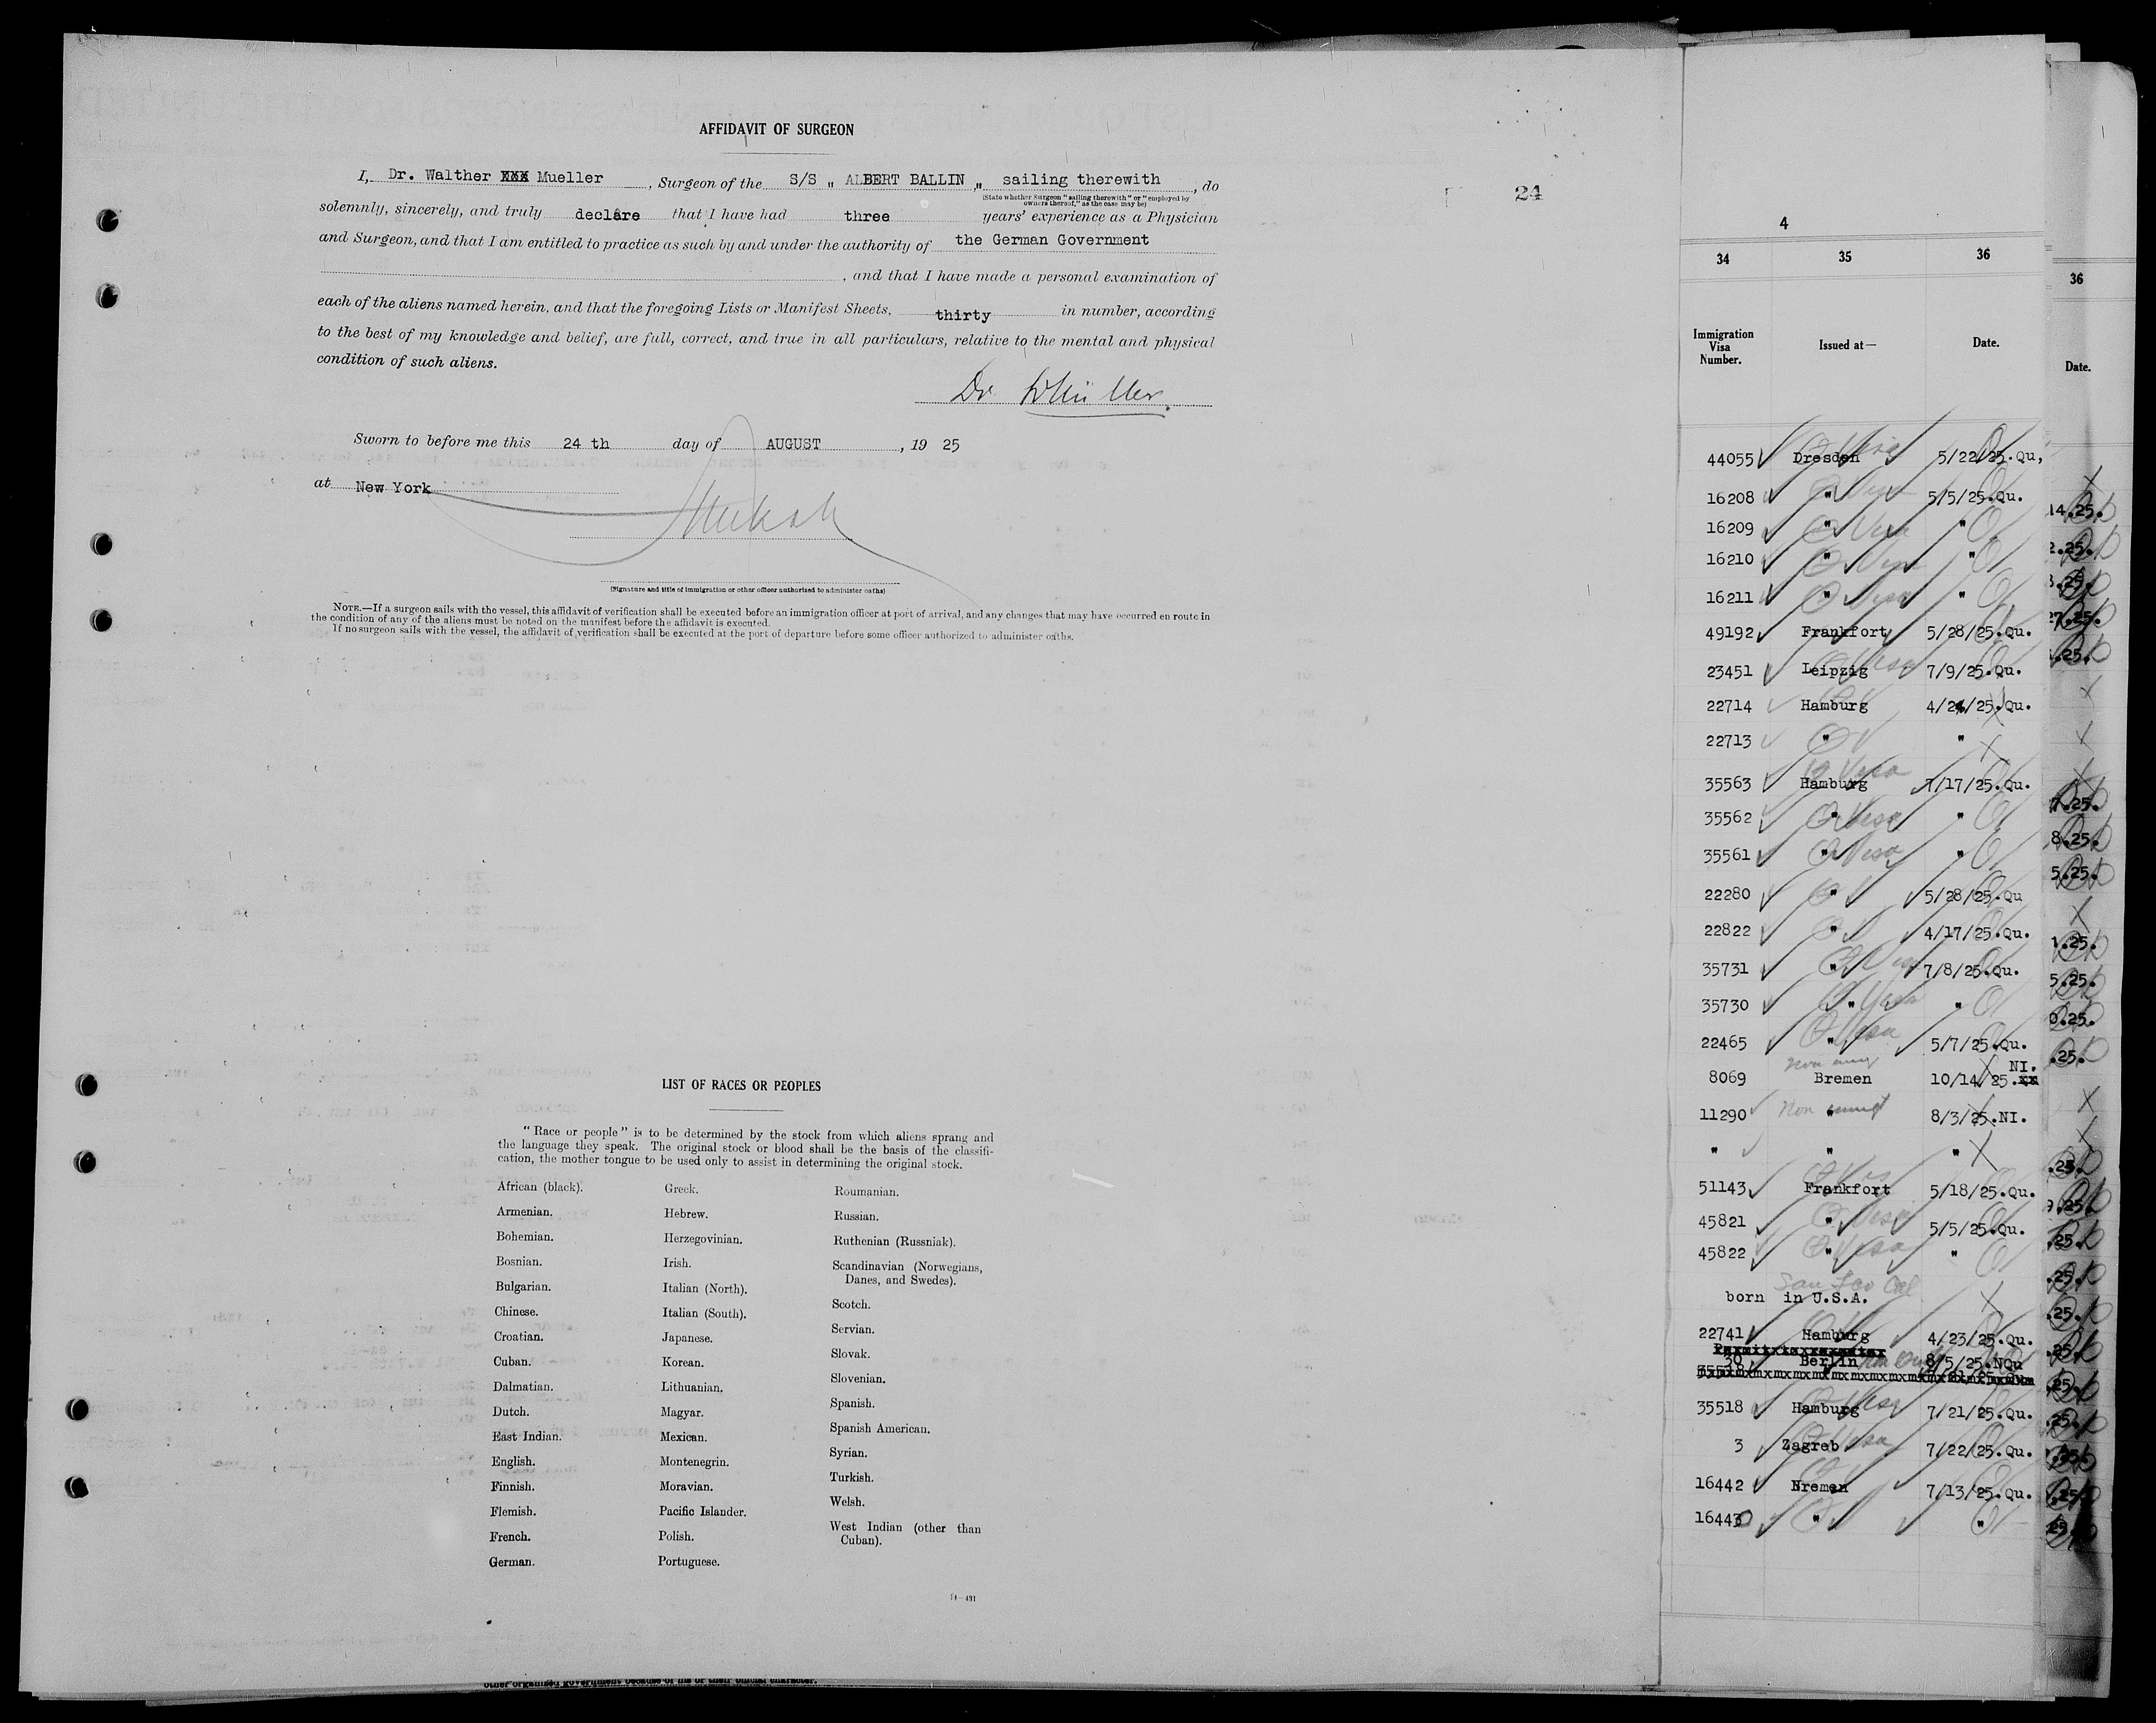 AFFIDAVIT OF SURGEON
I, Dr. Walther XXX Mueller , Surgeon of the S/S " ALBERT BALLIN " sailing therewith , do
(State whether Surgeon "sailing therewith" or "employed by
owners thereof," as the case may be)
solemnly, sincerely, and truly declare that I have had three years' experience as a Physician
and Surgeon, and that I am entitled to practice as such by and under the authority of the German Government
, and that I have made a personal examination of
each of the aliens named herein, and that the foregoing Lists or Manifest Sheets, thirty in number, according
to the best of my knowledge and belief, are full, correct, and true in all particulars, relative to the mental and physical
condition of such aliens.
Dr. WMüller.
Sworn to before me this 24 th day of AUGUST , 19 25
at New York
(Signature and title of immigration or other officer authorized to administer oaths)
NOTE.—If a surgeon sails with the vessel, this affidavit of verification shall be executed before an immigration officer at port of arrival, and any changes that may have occurred en route in
the condition of any of the aliens must be noted on the manifest before the affidavit is executed.
If no surgeon sails with the vessel, the affidavit of verification shall be executed at the port of departure before some officer authorized to administer oaths.
24
LIST OF RACES OR PEOPLES
"Race or people" is to be determined by the stock from which aliens sprang and
the language they speak. The original stock or blood shall be the basis of the classifi-
cation, the mother tongue to be used only to assist in determining the original stock.
African (black).
Armenian.
Bohemian.
Bosnian.
Bulgarian.
Chinese.
Croatian.
Cuban.
Dalmatian.
Dutch.
East Indian.
English.
Finnish.
Flemish.
French.
German.
Greek.
Hebrew.
Herzegovinian.
Irish.
Italian (North).
Italian (South).
Japanese.
Korean.
Lithuanian.
Magyar.
Mexican.
Montenegrin.
Moravian.
Pacific Islander.
Polish.
Portuguese.
Roumanian.
Russian.
Ruthenian (Russniak).
Scandinavian (Norwegians,
Danes, and Swedes).
Scotch.
Servian.
Slovak.
Slovenian.
Spanish.
Spanish American.
Syrian.
Turkish.
Welsh.
West Indian (other than
Cuban).
14—431
other organized government because of his or their official character.
4
34 35 36
Immigration
Visa
Number.
Issued at—
Date.
44055 Dresden 5/22/25.Qu,
16208 " 5/5/25.Qu.
16209 " "
16210 " "
16211 " "
49192 Frankfort 5/28/25.Qu.
23451 Leipzig 7/9/25.Qu.
22714 Hamburg 4/24/25.Qu.
22713 " "
35563 Hamburg 7/17/25.Qu.
35562 " "
35561 " "
22280 " 5/28/25.Qu
22822 " 4/17/25.Qu.
35731 " 7/8/25.Qu.
35730 " "
22465 " 5/7/25.Qu.
8069 Bremen 10/14/25.xx NI.
11290 " 8/3/25.NI.
" " "
51143 Frankfort 5/18/25.Qu.
45821 " 5/5/25.Qu.
45822 " "
San Fco Cal
born in U.S.A.
22741 Hamburg 4/23/25.Qu.
30 Berlin 8/5/25.NQu
35518 Hamburg 7/21/25.Qu.
3 Zagreb 7/22/25.Qu.
16442 Bremen 7/13/25.Qu.
16443 " "
36
Date.
14.25.
2.25.
3.25.
27.25.
.25.
7.25.
8.25.
5.25.
1.25.
5.25.
0.25.
.25.
.25.
9.25.
.25.
.25.
.25.
.25.
.25.
.25.
.25.
.25.
25.